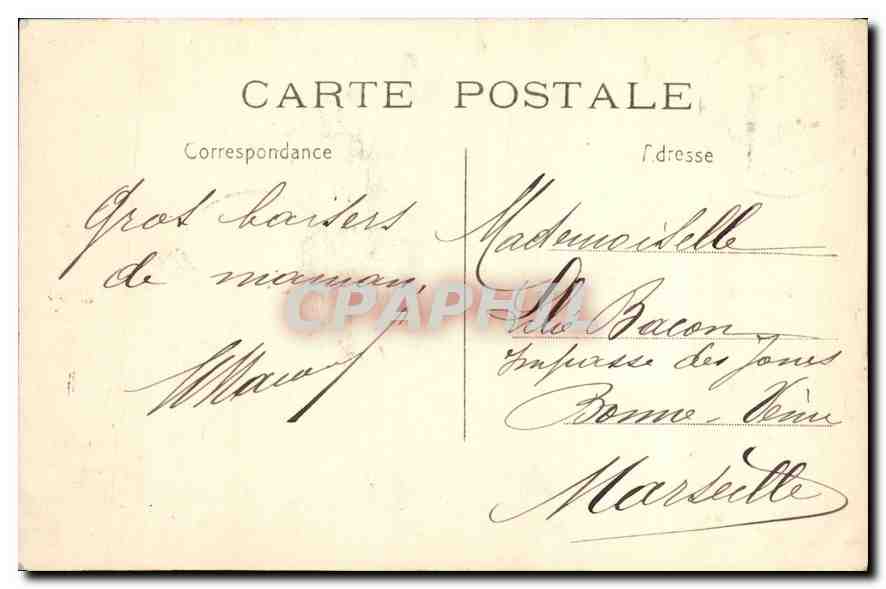 CARTE POSTALE
Correspondance
Adresse
Gros baisers
de maman,
Mademoiselle
Bacon
Impasse des Joncs
Bonne-Veine
Marseille
CPAPHIL